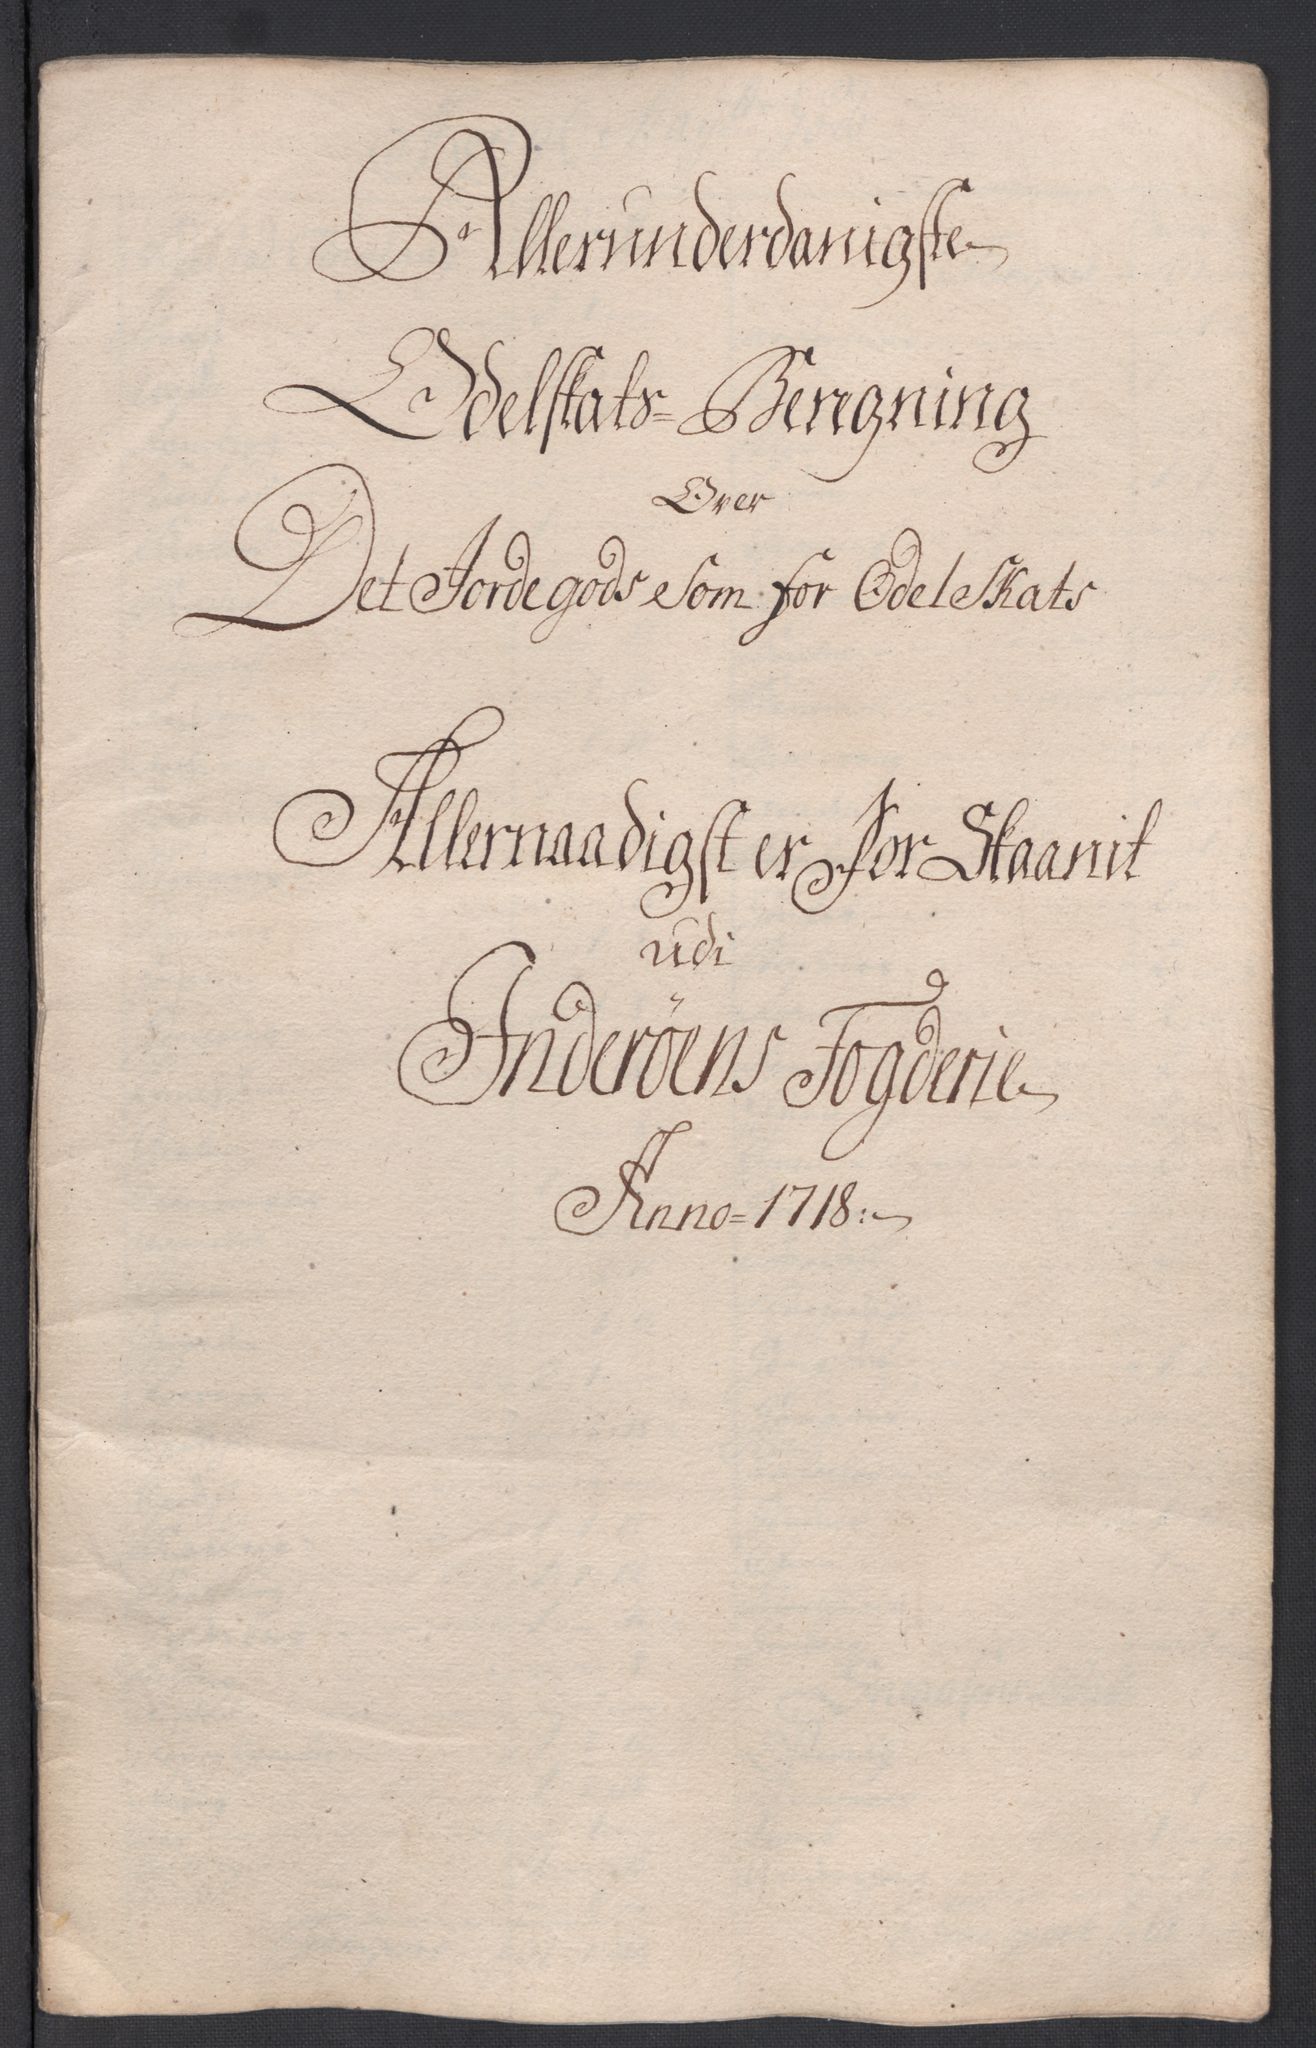 Allerunderdanigste
Odelskats= Beregning
Over
Det Jordegods som for Odelskats
Allernaadigst er forskaanit
udi
Inderöens Fogderie
Anno= 1718: